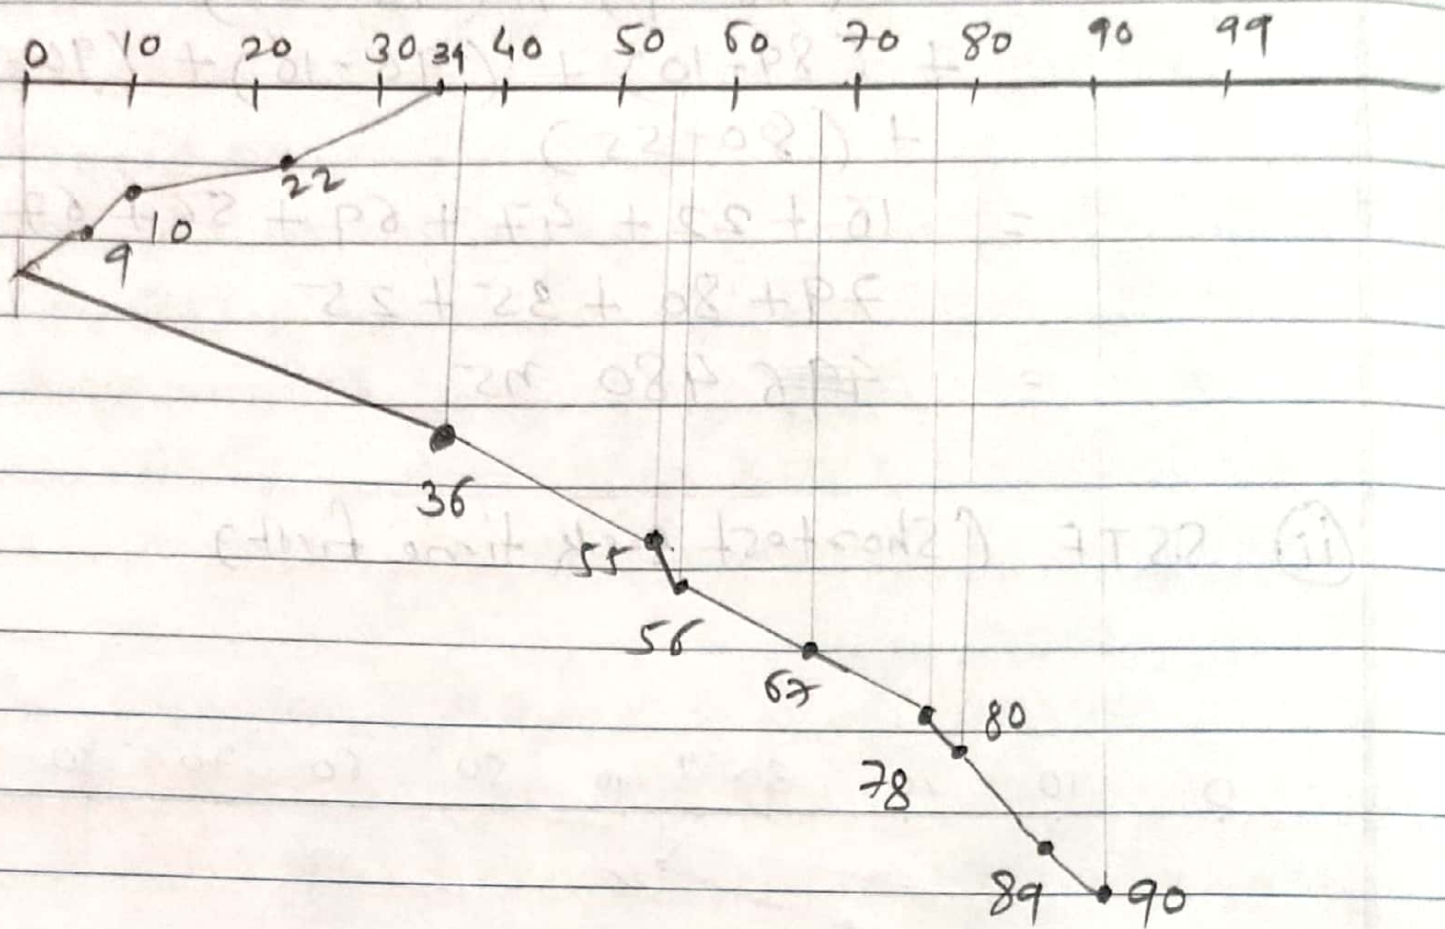 0 10 20 30 34 40 50 60 70 80 90 99
22
10
9
36
55
56
67
80
78
89 90